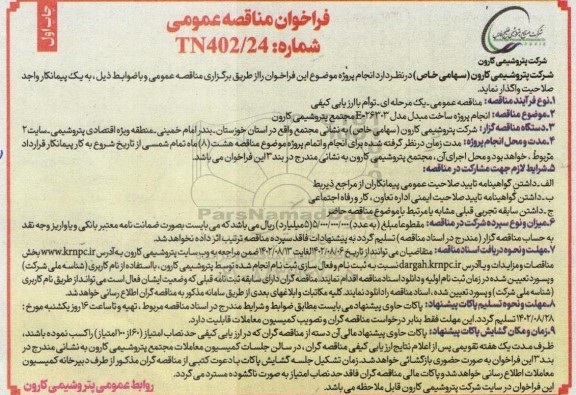 فراخوان مناقصه عمومی
شماره: TN402/24
چاپ اول
شرکت پتروشیمی کارون
شرکت پتروشیمی کارون (سهامی خاص) در نظر دارد انجام پروژه موضوع این فراخوان را از طریق برگزاری مناقصه عمومی و با ضوابط ذیل، به یک پیمانکار واجد
صلاحیت واگذار نماید.
۱.نوع فرآیند مناقصه: مناقصه عمومی-یک مرحله ای-توأم با ارزیابی کیفی
۲.موضوع مناقصه: انجام پروژه ساخت مبدل مدل E-۰۲۶۳۰۳ مجتمع پتروشیمی کارون
۳.دستگاه مناقصه گزار: شرکت پتروشیمی کارون (سهامی خاص) به نشانی مجتمع واقع در استان خوزستان-بندر امام خمینی-منطقه ویژه اقتصادی پتروشیمی-سایت ۲
۴.مدت و محل انجام پروژه: مدت زمان در نظر گرفته شده برای انجام و اتمام پروژه موضوع مناقصه هشت (۸) ماه تمام شمسی از تاریخ شروع به کار پیمانکار قرارداد
مربوط، خواهد بود و محل اجرای آن، مجتمع پتروشیمی کارون به نشانی مندرج در بند ۳ این فراخوان می باشد.
۵.شرایط لازم جهت مشارکت در مناقصه:
الف.داشتن گواهینامه تایید صلاحیت عمومی پیمانکاران از مراجع ذیربط
ب.داشتن گواهینامه تایید صلاحیت ایمنی اداره تعاون، کار و رفاه اجتماعی
ج.داشتن سابقه تجربی قبلی مشابه یا مرتبط با موضوع مناقصه حاضر
۶.میزان و نوع سپرده شرکت در مناقصه: مقطوعا مبلغ (به عدد) ۵/۰۰۰/۰۰۰/۰۰۰ (۵ میلیارد) ریال می باشد که می بایست بصورت ضمانت نامه معتبر بانکی و یا واریز وجه نقد
به حساب مناقصه گزار (مندرج در اسناد مناقصه) تسلیم گردد به پیشنهادات فاقد سپرده مناقصه ترتیب اثر داده نخواهد شد.
۷.مهلت و نحوه دریافت اسناد مناقصه: متقاضیان می توانند از تاریخ ۱۴۰۲/۰۸/۰۶ لغایت ۱۴۰۲/۰۸/۱۳ ضمن مراجعه به وب سایت پتروشیمی کارون به آدرس www.krnpc.ir بخش
مناقصات و مزایدات و یا آدرس dargah.krnpc.ir نسبت به ثبت نام و فعال سازی ثبت نام انجام شده توسط پتروشیمی کارون، با استفاده از نام کاربری (شناسه ملی شرکت)
و پسورد تعیین شده در زمان ثبت نام اولیه و دانلود اسناد مناقصه اقدام نمایند. مناقصه گران دارای سابقه ثبت نام قبلی که وضعیت ایشان فعال است می توانند از طریق نام کاربری
(شناسه ملی شرکت) و پسورد تعیین شده، اسناد مناقصه را دانلود نمایند. کلیه مکاتبات و ابلاغهای بعدی از طریق سامانه مذکور به مناقصه گران اطلاع رسانی خواهد شد.
۸.مهلت و نحوه تسلیم پاکات پیشنهاد: پاکات حاوی پیشنهاد می بایست مطابق ضوابط و شرایط مندرج در اسناد مناقصه مربوط، تهیه و تا ساعت ۱۶ روز یکشنبه مورخ
۱۴۰۲/۰۸/۲۸ تسلیم گردد. این مهلت فقط بنابر درخواست مناقصه گران و تصویب کمیسیون معاملات قابلیت دارد.
۹.زمان و مکان گشایش پاکات پیشنهاد: پاکات حاوی پیشنهاد مالی آن دسته از مناقصه گران که در ارزیابی کیفی حد نصاب امتیاز (۶۰ از ۱۰۰ امتیاز) را کسب نموده باشند،
ظرف مدت یک هفته تقویمی پس از اعلام نتایج ارزیابی کیفی مناقصه گران، در سالن جلسات کمیسیون معاملات مجتمع پتروشیمی کارون به نشانی مندرج در
بند ۳ این فراخوان به صورت حضوری بازگشائی خواهد شد. زمان تشکیل جلسه گشایش پاکات با دعوت کتبی از مناقصه گران مذکور از طرف دبیرخانه کمیسیون
معاملات اطلاع رسانی خواهد شد و پاکات مالی مناقصه گران فاقد حد نصاب امتیاز به صورت ناگشوده مسترد می گردد.
این فراخوان در سایت شرکت پتروشیمی کارون قابل ملاحظه می باشد.
روابط عمومی پتروشیمی کارون